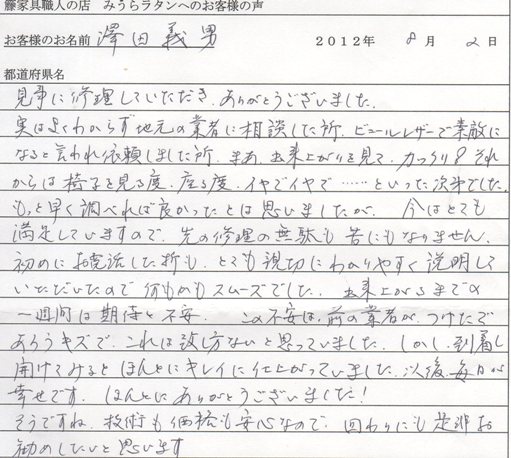 藤家具職人の店 みうらラタンへのお客様の声
お客様のお名前 澤田義男 2012年 8月 2日
都道府県名
見事に修理していただき、ありがとうございました。
実はよくわからず地元の業者に相談した所、ビニールレザーで素敵に
なると言われ依頼しました所、まあ出来上がりを見て、ガックリ!それ
からは椅子を見る度、座る度、イヤでイヤで……といった次第でした。
もっと早く調べれば良かったとは思いましたが、今はとても
満足していますので、先の修理の無駄も苦にもなりません。
初めにお電話した折も、とても親切にわかりやすく説明して
いただいたので何もかもスムーズでした。出来上がるまでの
一週間は期待と不安。この不安は、前の業者が、つけたで
あろうキズで、これは致し方ないと思っていました。しかし、到着し
開けてみるとほんとにキレイに仕上がっていました。以後、毎日が
幸せです。ほんとにありがとうございました!
そうですね、技術も価格も安心なので、回わりにも是非お
勧めしたいと思います